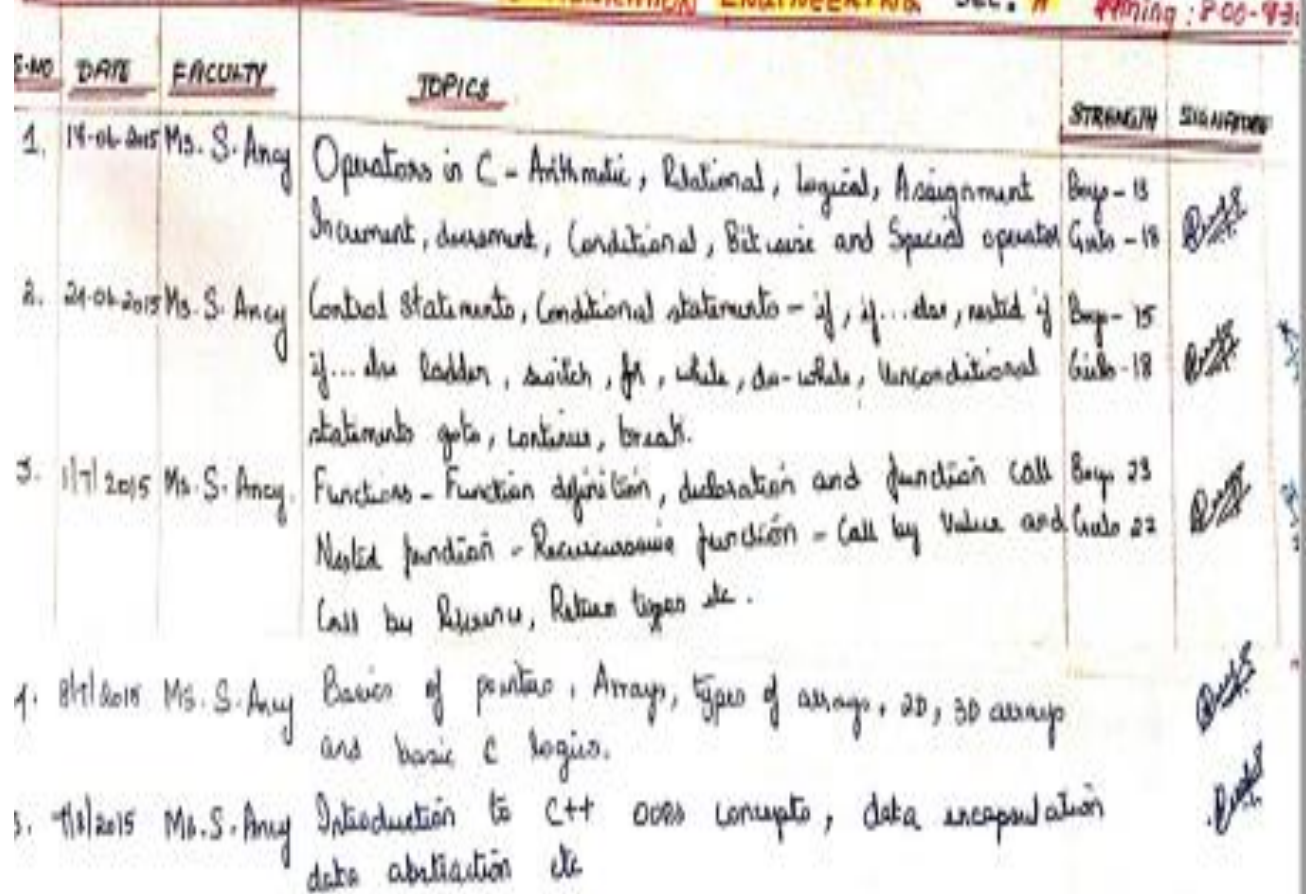 ENGINEERING SEC: A Timing: 8-00-9-30
S.NO DATE FACULTY TOPICS STRENGTH SIGNATURE
1. Ms. S. Ancy Operators in C - Arithmetic, Relational, Logical, Assignment Boys - 13
Increment, decrement, Conditional, Bitwise and Special operator Girls - 18
2. 24-06-2015 Ms. S. Ancy Control Statements, Conditional statements - if, if...else, nested if Boys - 15
if...else ladder, switch, for, while, do-while, Unconditional Girls - 18
statements goto, continue, break.
3. 1/7/2015 Ms. S. Ancy. Functions - Function definition, declaration and function call Boys 23
Nested function - function - Call by Value and Girls 22
Call by Return types etc.
4. 8/7/2015 Ms. S. Ancy Basics of pointers, Arrays, types of arrays, 2D, 3D arrays
and basic C logics.
5. Ms. S. Ancy Introduction to C++ OOPs concepts, data encapsulation
data abstraction etc